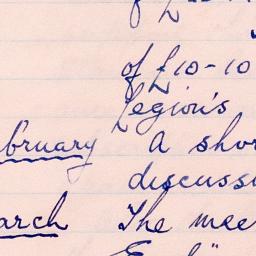 of £
of £10-10
Legion's
bruary A shor
discussi
arch The mee